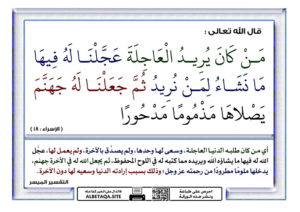 قال الله تعالى :
مَّن كَانَ يُرِيدُ الْعَاجِلَةَ عَجَّلْنَا لَهُ فِيهَا
مَا نَشَاءُ لِمَن نُّرِيدُ ثُمَّ جَعَلْنَا لَهُ جَهَنَّمَ
يَصْلَاهَا مَذْمُومًا مَّدْحُورًا
( الإسراء : ١٨ )
أي من كان طلبه الدنيا العاجلة، وسعى لها وحدها، ولم يصدق بالآخرة، ولم يعمل لها، عجَّل
الله له فيها ما يشاؤه الله ويريده مما كتبه له في اللوح المحفوظ، ثم يجعل الله له في الآخرة جهنم،
يدخلها ملومًا مطرودًا من رحمته عز وجل؛ وذلك بسبب إرادته الدنيا وسعيه لها دون الآخرة.
التفسير الميسر
ALBETAQA.SITE